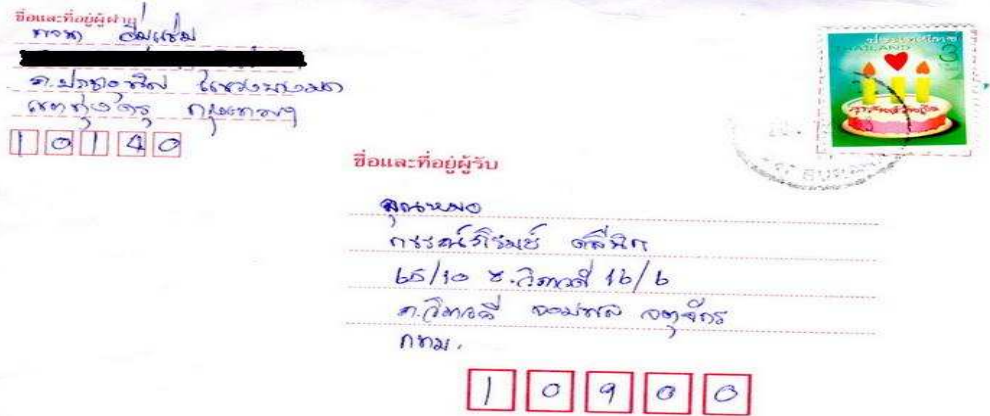 ชื่อและที่อยู่ผู้ฝาก
อิ่มแช่ม
ถ.ประชาอุทิศ แขวงบางมด
เขตทุ่งครุ กรุงเทพฯ
10140
ประเทศไทย
THAILAND
3
สุขสันต์วันเกิด
BURANA
ชื่อและที่อยู่ผู้รับ
คุณหมอ
กรรณภิรมย์ คลีนิก
65/10 ซ.วิภาวดี 16/6
ถ.วิภาวดี จอมพล จตุจักร
กทม.
10900